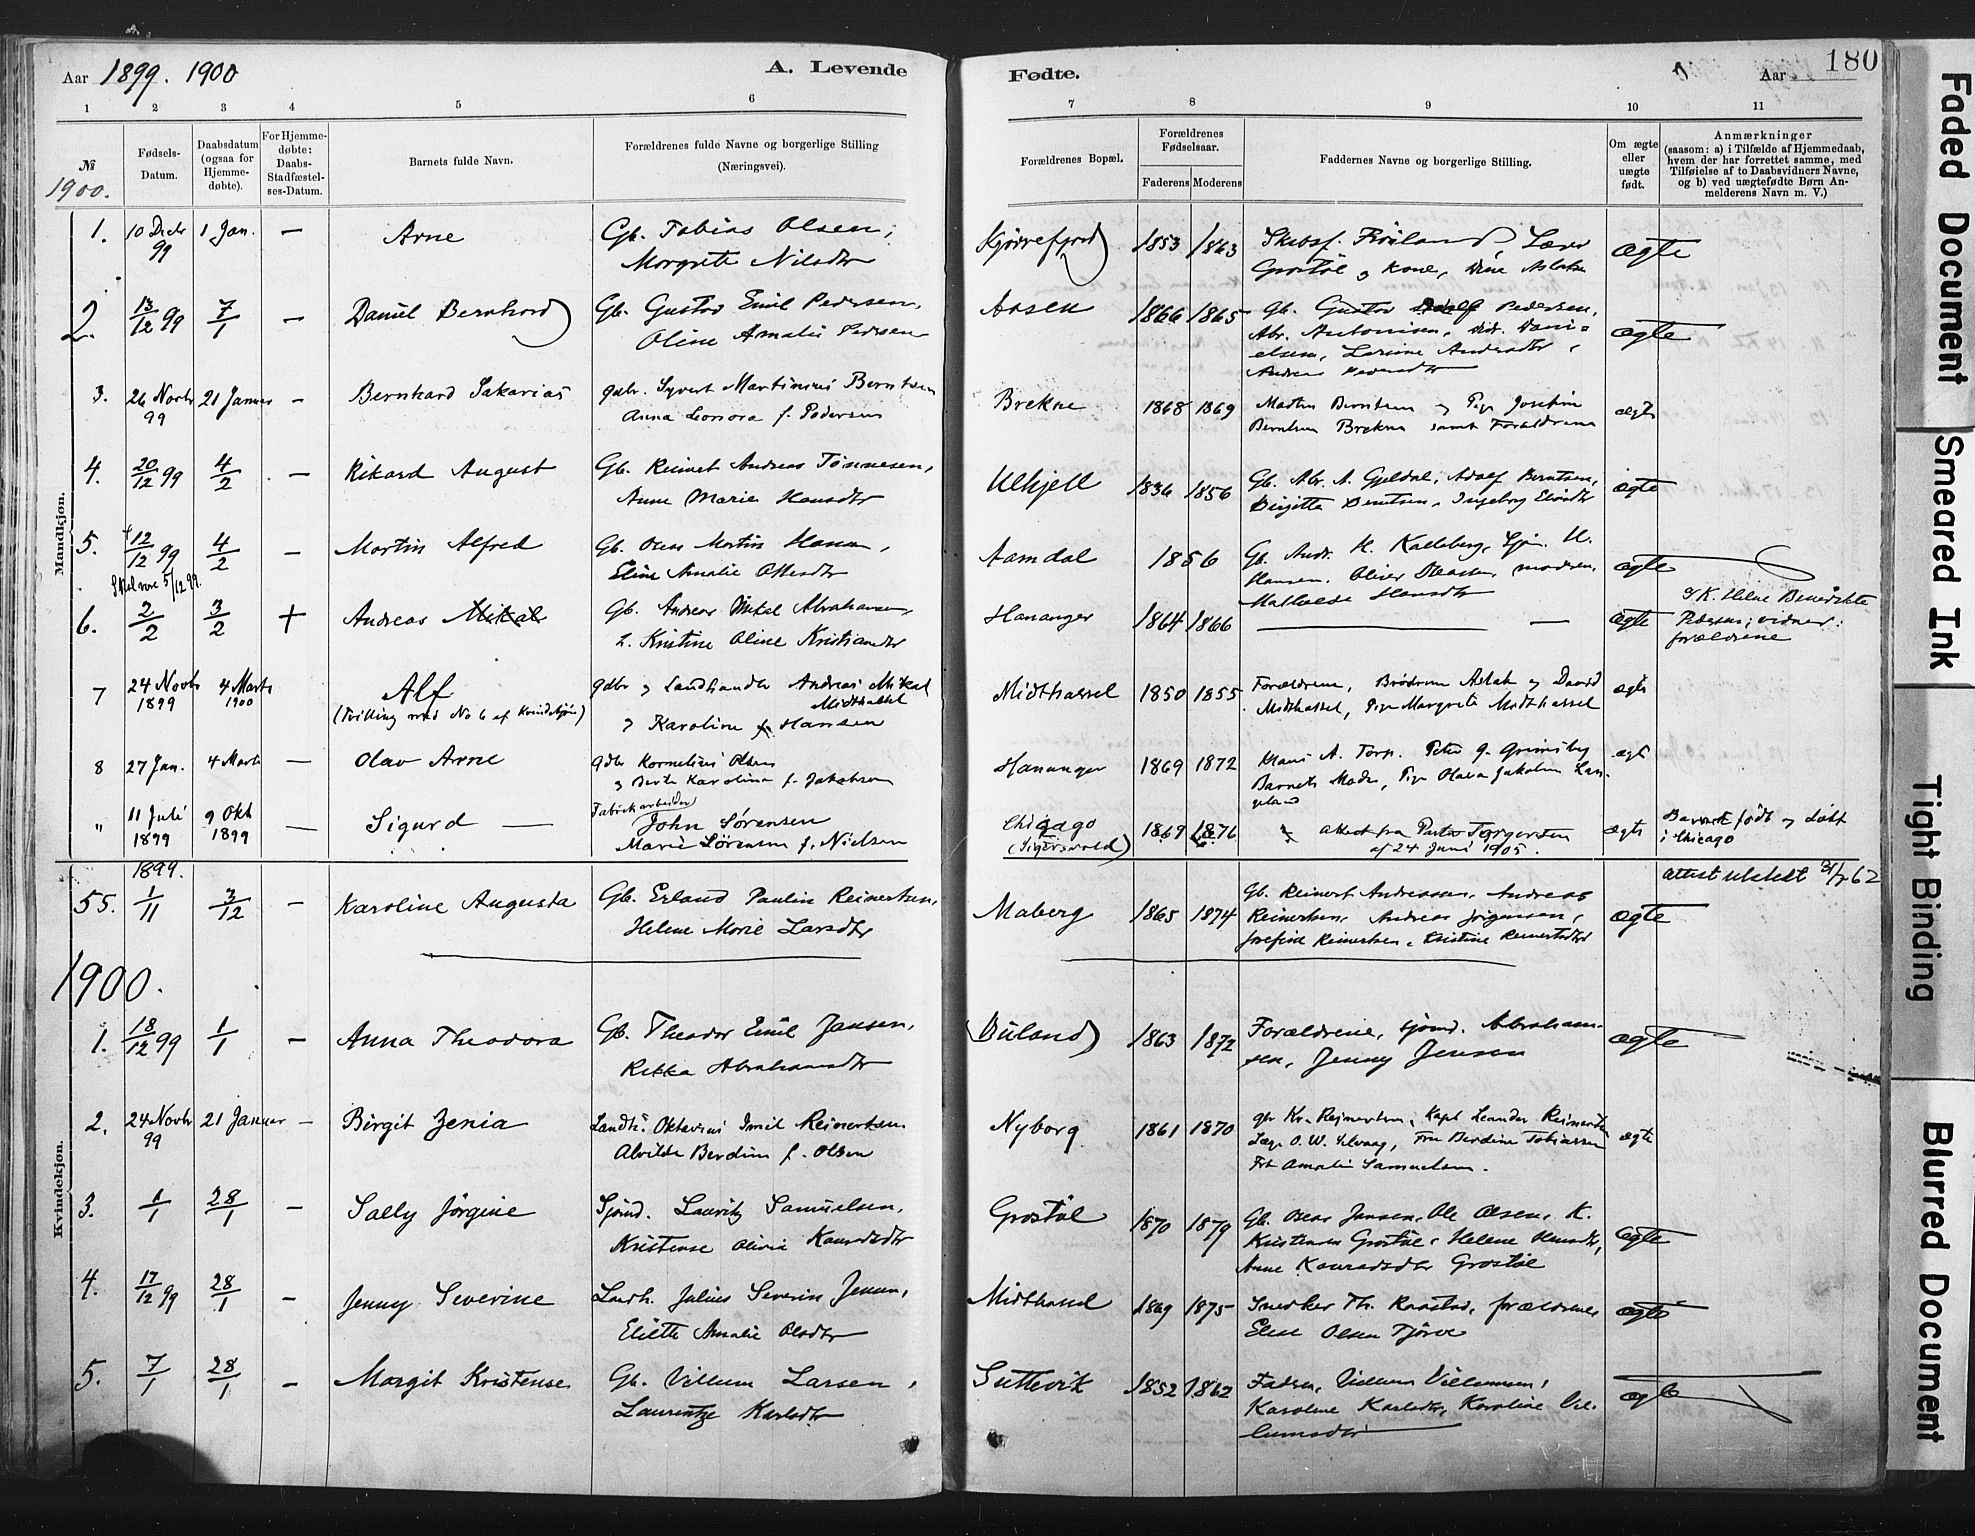 Aar 1899. 1900
A. Levende
Fødte.
Aar
180
1 2 3 4 5 6 7 8 9 10 11
№
1900.
Fødsels-Datum.
Daabsdatum (ogsaa for Hjemme-døbte).
For Hjemme-døbte: Daabs-Stadfæstel-ses-Datum.
Barnets fulde Navn.
Forældrenes fulde Navne og borgerlige Stilling (Næringsvei).
Forældrenes Bopæl.
Forældrenes Fødselsaar.
Faderens Moderens
Faddernes Navne og borgerlige Stilling.
Om ægte eller uægte født.
Anmærkninger
(saasom: a) i Tilfælde af Hjemmedaab, hvem der har forrettet samme, med Tilføielse af to Daabsvidners Navne, og b) ved uægtefødte Børn An-melderens Navn m. V.)
Mandkjøn.
1. 10 Decbr 99 1 Jan. — Arne Gb. Tobias Olsen, Margrete Nilsdtr Kjørrefjord 1853 1863 Grostøl og Kone, ægte
2. 13/12 99 7/1 — Daniel Bernhard Gb. Gustav Emil Pedersen, Oline Amalie Pedersen Aasen 1866 1865 Gb. Gustav Adolf Pedersen, Abr. Antonisen, Dani-elsen, Andrea Pedersdtr ægte
3. 26 Novbr 99 21 Januar — Bernhard Sakarias gdbr. Syvert Martinius Berntsen Anna Leonora f. Pedersen Brekne 1868 1869 Berntsen og Pige Josefine Berntsen Brekne samt Forældrene ægte
4. 20/12 99 4/2 — Rikard August Gb. Reinert Andreas Tönnesen, Anne Marie Hansdtr Ulkjell 1836 1856 Gb. Abr. A. Gjeldal, Adolf Berntsen, Birgitte Berntsen, Ingeborg ægte
5. 12/12 99 4/2 — Martin Alfred Gb. Martin Hansen, Eline Amalie Ottesdtr Aamdal 1856 Gb. Andr. H. Kalleberg, H. Hansen. Oliver moderen, Mathilde Hansdtr ægte
Skal være 5/12 99.
6. 2/2 3/2 + Andreas Mikal Gb. Andreas Mikal Abrahamsen, Kristine Oline Kristiansdtr Hananger 1864 1866 — ægte K. Helene Benedikte Pedersen; vidner: forældrene
7 24 Novbr 1899 4 Marts 1900 Alf (Tvilling med No 6 af Kvindekjön) gdbr og Landhandler Andreas Mikal Midthassel og Karoline f. Hansen Midthassel 1850 1855 Forældrene, Brødrene Aslak og David Midthassel, Pige Margrete Midthassel ægte
8 27 Jan. 4 Marts — Olav Arne gdbr Kornelius Olsen og Berte Karoline f. Jakobsen Hananger 1869 1872 A. Torp. Peter G. Grimsby Barnets Moder, Pige Olava Jakobsen Lan-geland ægte
" 11 Juli 1899 9 Okt 1899 — Sigurd — Fabrikarbeider John Sørensen Marie Sørensen f. Nielsen Chicago 1869 1876 Attest fra Pastor Torgersen af 24 Juni 1905. ægte Barnet født og døbt i Chicago
Attest utstedt 62
1899.
55. 1/11 3/12 — Karoline Augusta Gb. Erland Paulin Reinertsen, Helene Marie Larsdtr Maberg 1865 1874 Gb. Reinert Andreassen, Andreas Reinertsen, Andreas Jörgensen, Josefine Reinertsen, Kristine Reinertsdtr ægte
1900.
Kvindekjøn.
1. 18/12 99 1/1 — Anna Theodora Gb. Theodor Emil Jansen, Rikka Abrahamsdtr Buland 1863 1872 Forældrene, Sjömd. Abraham-sen, Jenny Jensen ægte
2. 24 Novbr 99 21 Januar — Birgit Zenia Landh. Oktavius Emil Reinertsen Alvilde Berdine f. Olsen Nyborg 1861 1870 gbr Kr. Reinertsen, Kapt Leander Reinertsen Læge O. W. Fru Berdine Tobiassen Frk Amalie Samuelsen. ægte
3. 1/1 28/1 — Sally Jörgine Sjömd. Lauritz Samuelsen, Kristense Olivie Konradsdtr Grostøl 1870 1879 Gb. Jansen, Ole Olsen, K. Kristensen Grostøl, Helene Anne Konradsdtr Grostøl ægte
4. 17/12 99 28/1 — Jenny Severine Landh. Julius Severin Jensen, Eliette Amalie Olsdtr Midthassel 1869 1875 Snedker Th. Raastad, forældrene Elene Olsen Tjörve ægte
5. 7/1 28/1 — Margit Kristense Gb. Villum Larsen, Laurentze Karlsdtr Suttevik 1852 1862 Faderen, Villum Villumsen, Karoline Karlsdtr, Karoline Vil-lumsdtr ægte
Faded Document
Smeared Ink
Tight Binding
Blurred Document